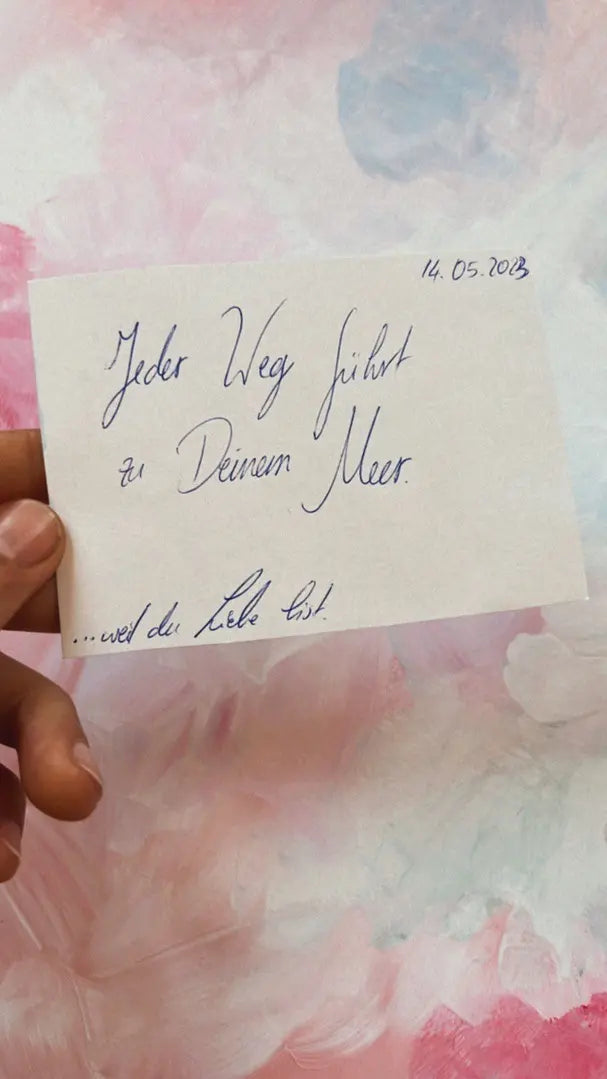 14.05.2023
Jeder Weg führt
zu Deinem Meer.
...weil du Liebe bist.